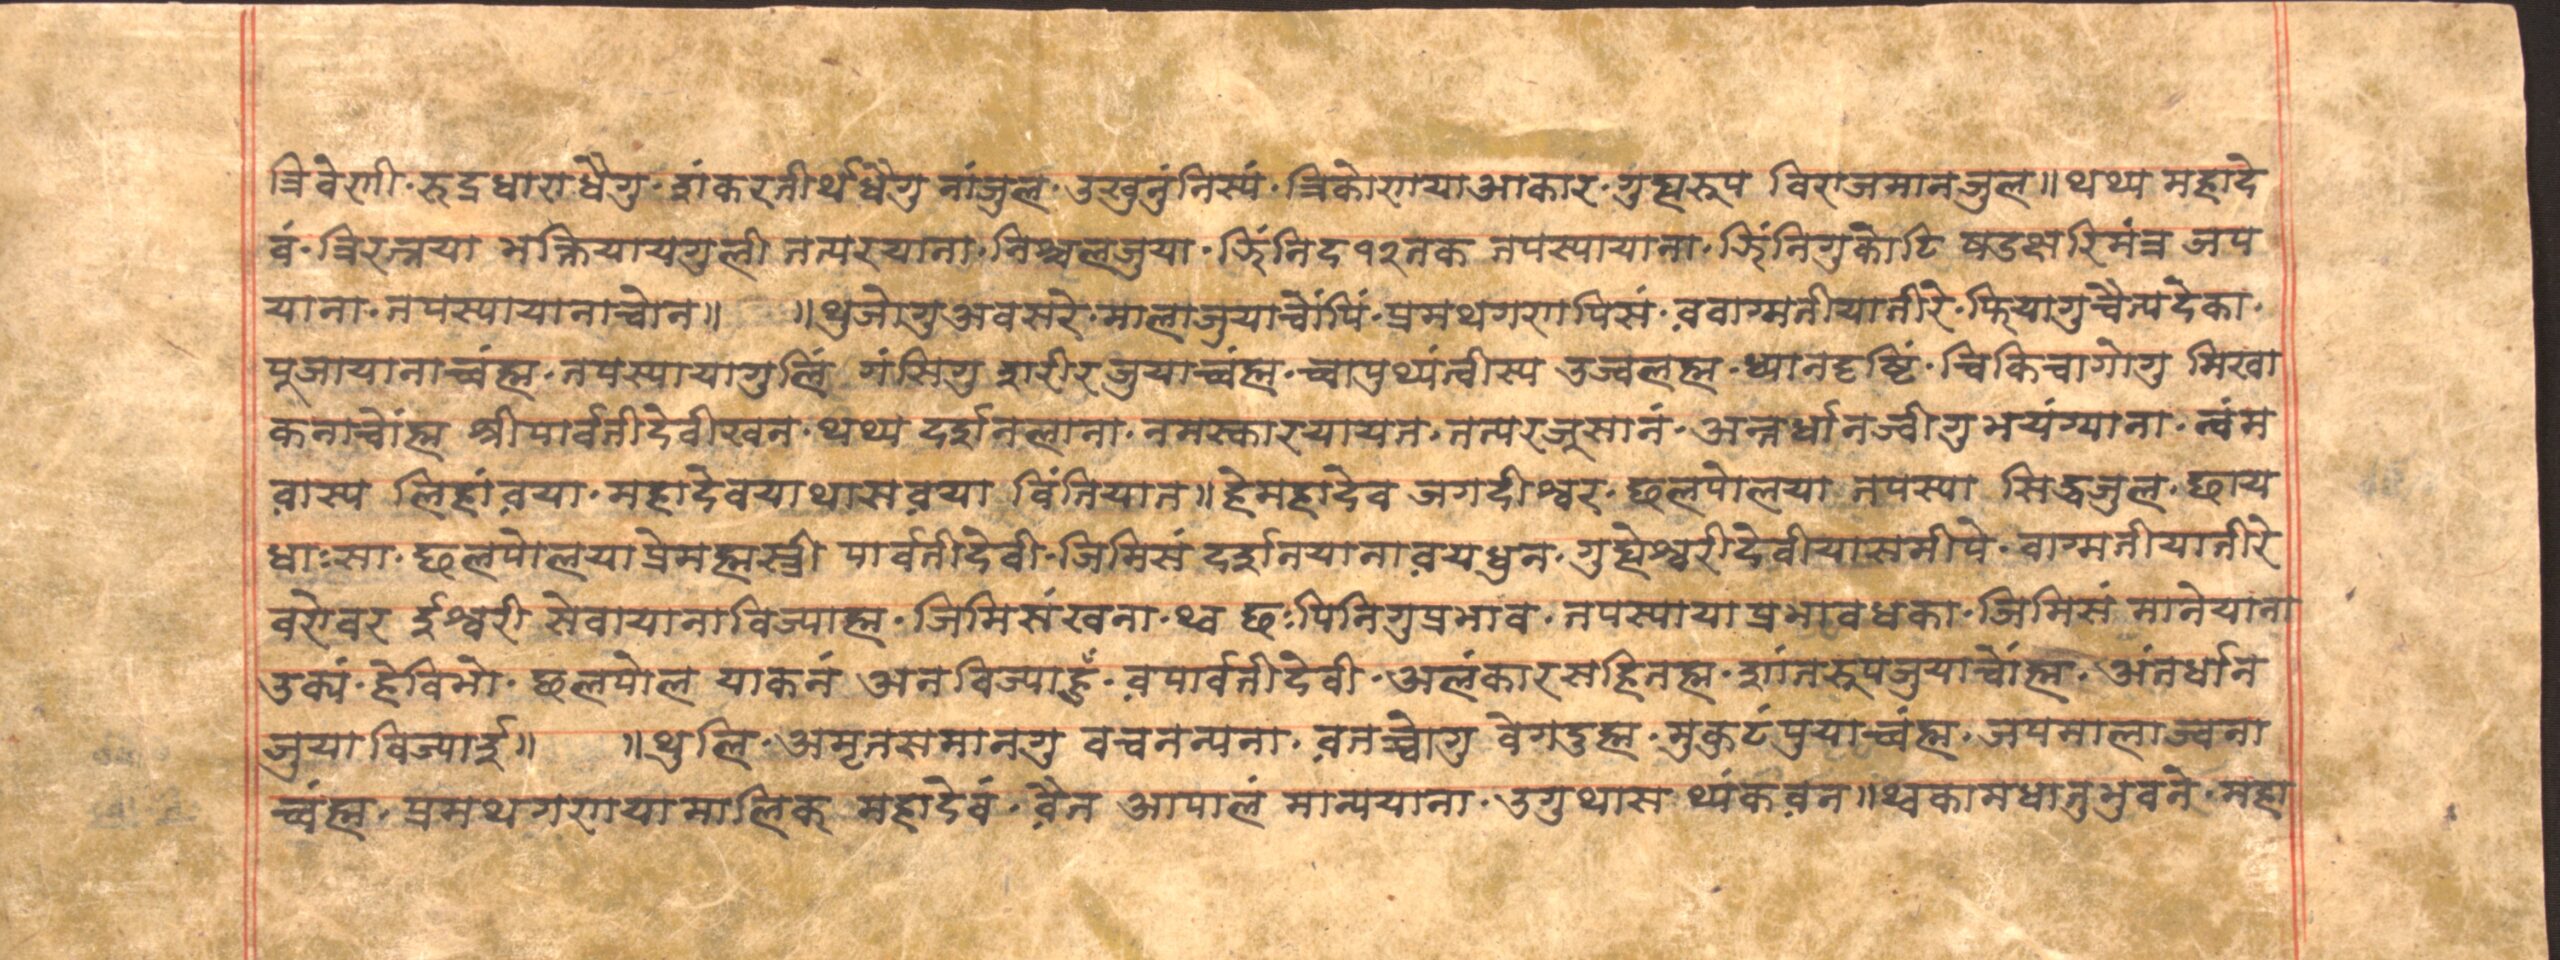 त्रिवेणी · रुद्रधाराधैगु · शंकरतीर्थधैगु नांजुल · उखुनुंनिस्यं · त्रिकोणयाआकार · गुह्यरूप विराजमानजुल॥ थथ्य महादे
वं · त्रिरत्नया भक्तियायगुली तत्परयाना · निश्चलजुया · झिंनिद१२तक तपस्यायाना · झिंनिगुकोटि षडक्षरिमंत्र जप
याना · तपस्यायानाच्वोन॥ ॥ थुजोगुअवसरे · मालाजुयाच्वोंपिं · प्रमथगणपिसं · व़वाग्मतीयातीरे · फियागुचैत्यदेका ·
पूजायानाच्वंह्म · तपस्यायागुलिं गंसिगु शरीरजुयाच्वंह्म · च्वापुथ्यंत्वीस्य उज्वलह्म · ध्यानदृष्टिं · चिकिचागोगु मिखा
कनाच्वोंह्म श्रीपार्वतीदेवीखन · थथ्य दर्शनलाना · नमस्कारयायत · तत्परजूसानं · अन्तर्धानज्वीगुभयंग्याना · त्वंम
व़ास्य लिहांव़या · महादेवयाथासव़या विंतियात॥ हेमहादेव जगदीश्वर · छलपोलया तपस्या सिद्धजुल · छाय
धाःसा · छलपोलयाप्रेमह्मस्त्री पार्वतीदेवी · जिमिसं दर्शनयानाव़यधुन · गुह्येश्वरीदेवीयासमीपे · वाग्मतीयातीरे
वरोवर ईश्वरी सेवायानाविज्याह्म · जिमिसंखना · थ्व छःपिनिगुप्रभाव · तपस्यायाप्रभावधका · जिमिसं मानेयाना
उक्यं · हेविभो · छलपोल याकनं अनविज्याहुँ · व़पार्वतीदेवी · अलंकारसहितह्म · शांतरूपजुयाच्वोंह्म · अंतर्धान
जुयाविज्याई॥ ॥ थुलि · अमृतसमानगु वचनन्यना · व़तच्वोगु वेगदुह्म · मुकुटंपुयाच्वंह्म · जपमालाज्वना
च्वंह्म · प्रमथगणयामालिक् महादेवं · व़ैत आपालं मान्ययाना · उगुथास थ्यंकव़न॥ थ्वकामधातुभुवने · महा